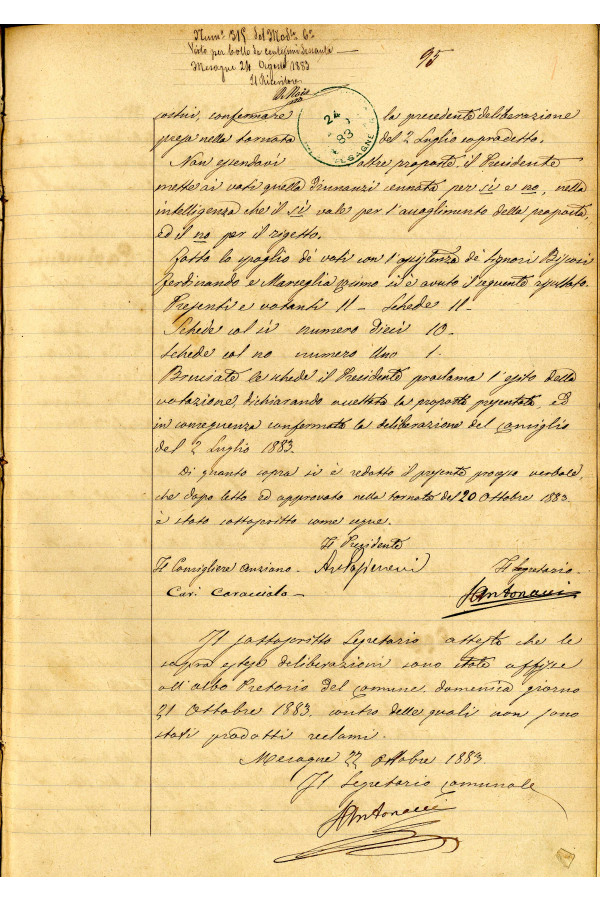 Num.º 315 del Mod.º 6º
Visto per bollo da centesimi sessanta
Mesagne 24 Agosto 1883
Il Ricevitore
95
24
83
MESAGNE
confermare la precedente deliberazione
presa nella tornata del 2 Luglio sopradetto.
Non essendovi altre proposte, il Presidente
mette ai voti quella dinnanzi cennata per sì e no, nella
intelligenza che il sì vale per l'accoglimento della proposta,
ed il no per il rigetto.
Fatto lo spoglio de' voti con l'assistenza de' Signori
Ferdinando e Marseglia Cosimo si è avuto il seguente risultato.
Presenti e votanti 11 - Schede 11 -
Schede col sì numero dieci 10 -
Schede col no numero Uno 1 -
Bruciate le schede il Presidente proclama l'esito della
votazione, dichiarando accettata la proposta presentata, ed
in conseguenza confermata la deliberazione del Consiglio
del 2 Luglio 1883.
Di quanto sopra si è redatto il presente processo verbale,
che dopo letto ed approvato nella tornata del 20 Ottobre 1883
è stato sottoscritto come segue.
Il Presidente
Il Consigliere anziano - Il Segretario
Cav. Caracciolo - Antonucci
Il sottoscritto Segretario attesta che le
sopra estese deliberazioni sono state affisse
all'albo Pretorio del Comune, domenica giorno
21 Ottobre 1883, contro delle quali non sono
stati prodotti reclami.
Mesagne 22 Ottobre 1883.
Il Segretario Comunale
Antonucci